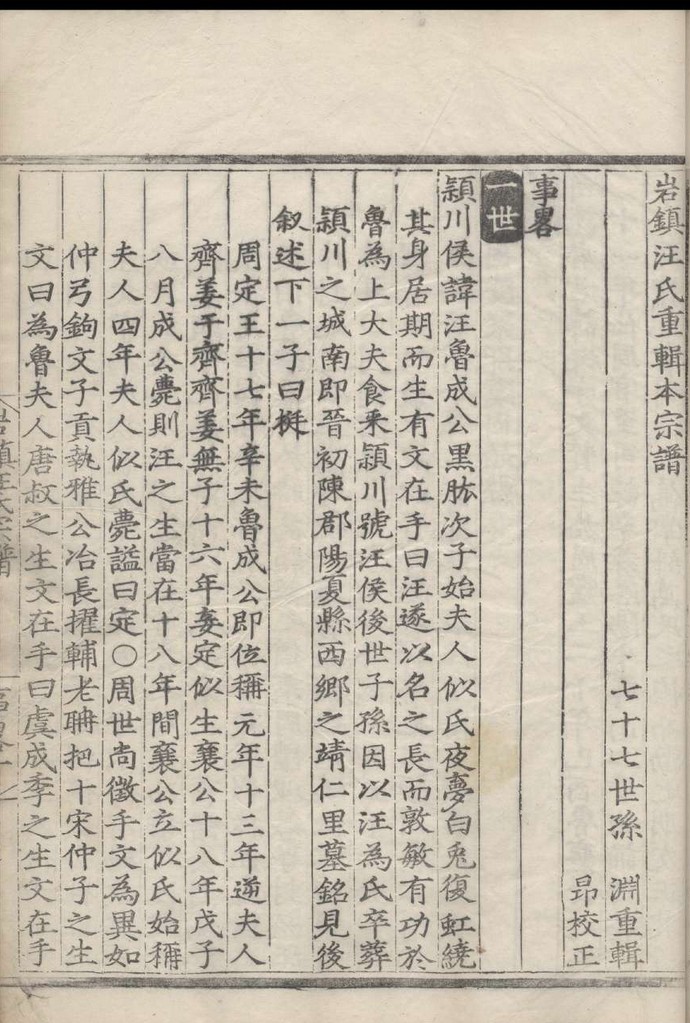 岩鎮汪氏重輯本宗譜
七十七世孫 淵重輯
昂校正
事畧
一世
頴川侯諱汪魯成公黑肱次子始夫人似氏夜夢白兎復虹繞
其身居期而生有文在手曰汪遂以名之長而敦敏有功於
魯為上大夫食釆頴川號汪侯後世子孫因以汪為氏卒葬
頴川之城南即晉初陳郡陽夏縣西鄉之靖仁里墓銘見後
叙述下一子曰挺
周定王十七年辛未魯成公即位稱元年十三年逆夫人
齊姜于齊齊姜無子十六年妾定似生襄公十八年戊子
八月成公薨則汪之生當在十八年間襄公立似氏始稱
夫人四年夫人似氏薨謚曰定〇周世尚徵手文為異如
仲弓鉤文子貢執雅公冶長擢輔老聃把十宋仲子之生
文曰為魯夫人唐叔之生文在手曰虞成季之生文在手
岩鎮汪氏宗譜
事畧一